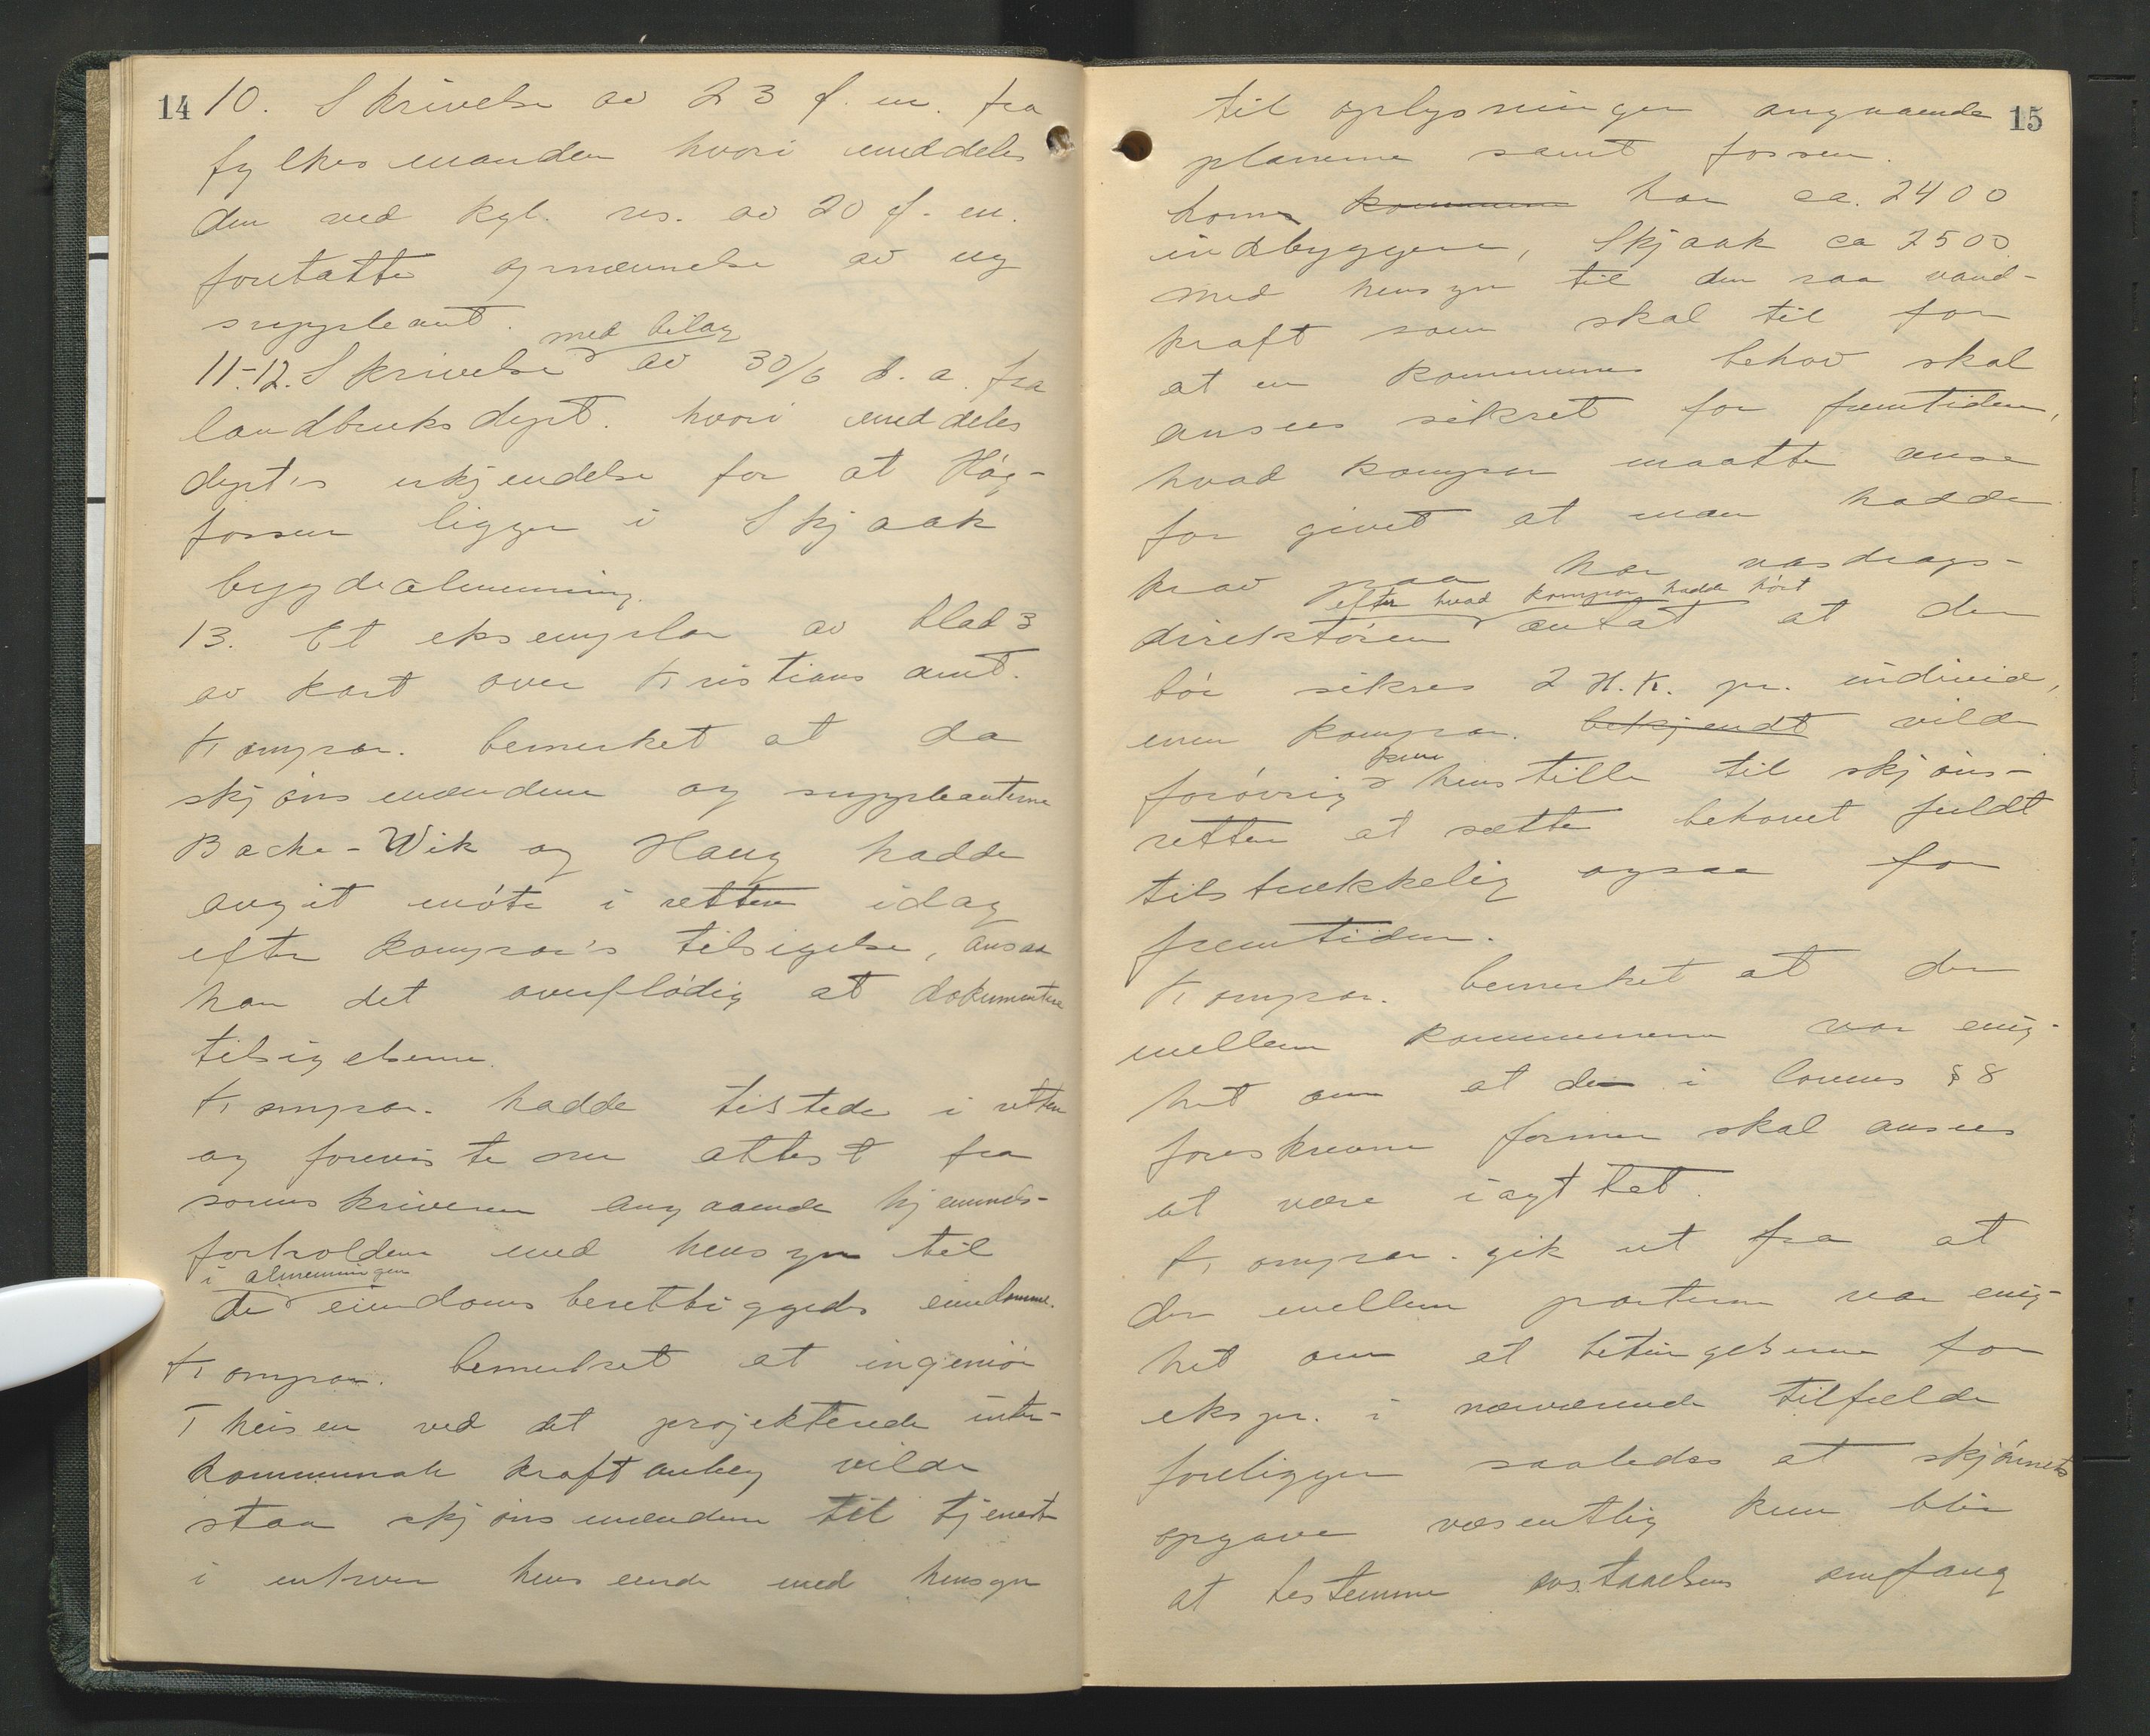 14
10. Skrivelse av 23 f. m. fra
fylkesmanden hvori meddeles
den ved kgl. res. av 20 f. m.
foretatte opnævnelse av ny
suppleant.
med bilag
11-12. Skrivelse av 30/6 d. a. fra
landbruksdept. hvori meddeles
dept's erkjendelse for at Høg-
fossen ligger i Skjaak
bygdealmenning.
13. Et eksemplar av blad 3
av kart over Kristians amt.
Kompar. bemerket at da
skjønsmændene og suppleanterne
Bache-Wik og Haug hadde
avgit møte i retten idag
efter kompar's tilsigelse, ansaa
han det overflødig at dokumentere
tilsigelserne.
Kompar. hadde tilstede i retten
og foreviste en attest fra
sorenskriveren angaaende hjemmels-
forholdene med hensyn til
i almenningen
de eiendomsberettiggede eiendomme.
Kompar. bemerket at ingeniør
Theisen ved det projekterede inter-
kommunale kraftanlæg vilde
staa skjønsmændene til tjeneste
i enhver henseende med hensyn
15
til oplysninger angaaende
planene samt fossen.
Lom kommune har ca. 2400
indbyggere, Skjaak ca 2500.
Med hensyn til den raa vand-
kraft som skal til for
at en kommunes behov skal
ansees sikret for fremtiden,
hvad kompar maatte anse
for givet at man hadde
krav paa har vasdrags-
efter hvad kompar hadde hørt
direktøren antat at der
bør sikres 2 H.K. pr. individ,
men kompar. bekjendt vilde
kun
forøvrig henstille til skjøns-
retten at sætte behovet fuldt
tilstrækkelig ogsaa for
fremtiden.
Kompar. bemerket at der
mellem kommunerne var enig-
het om at de i lovens § 8
foreskrevne former skal ansees
at være iagttat.
Kompar. gik ut fra at
der mellem parterne var enig-
het om at betingelserne for
ekspr. i nærværende tilfælde
foreligger saaledes at skjønnets
opgave væsentlig kun blir
at bestemme avstaaelsens omfang